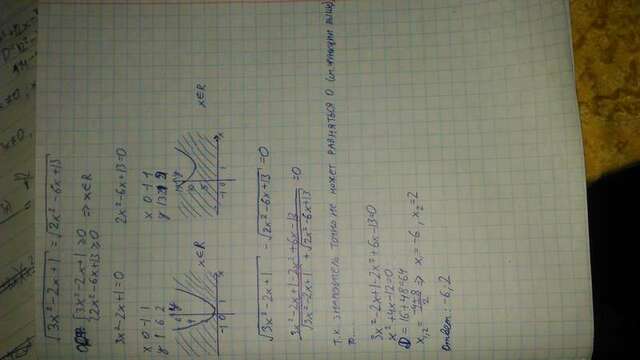 √3x²-2x+1 = √2x²-6x+13
{3x²-2x+1 ≥ 0
{2x²-6x+13 ≥ 0 ⇒ x∈R
3x²-2x+1=0 2x²-6x+13=0
x 0 -1 1 x 0 -1 1
y 1 6 2 y 13 21 9
x∈R x∈R
√3x²-2x+1 - √2x²-6x+13 = 0
3x²-2x+1-2x²+6x-13 / √3x²-2x+1 + √2x²-6x+13 = 0
т.к. знаменатель точно не может равняться 0
то...
3x²-2x+1-2x²+6x-13=0
x²+4x-12=0
D=16+48=64
x₁,₂ = -4±8 / 2 ⇒ x₁=-6, x₂=2
Ответ: -6, 2